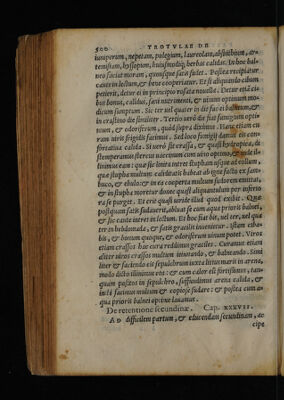 500 TROTVLAE DE
iuniperum, nepetam, pulegium, laureolam, absinthium, ar-
temisiam, hyssopum, huiusmodiq́; herbas calidas. In hoc bal-
neo faciat moram, quousque satis sudet. Postea recipiatur
caute in lectum, & bene cooperiatur. Et si aliquando cibum
petierit, detur ei in principio rosata nouella. Detur etiam ci-
bus bonus, calidus, sani nutrimenti, & uinum optimum mo-
dicum sumptum. Sic ter uel quater in die faciat balneum, &
in crastino die similiter. Tertio uero die fiat fumigium opti-
mum & odoriferum, quod supra diximus. Hanc etiam cu-
ram uteris frigidis facimus. Sed loco fumigij damus ei con-
fortatiua calida. Si uero sit crassa, & quasi hydropica, di-
stemperamus stercus uaccinum cum uino optimo, & inde il-
linimus eam: quae sic linita intret stupham usque ad collum,
quae stupha multum calida sit & habeat ab igne facto ex sam-
buco, & ebulo: & in ea cooperta multum sudorem emittat,
& in stupha moretur donec quasi aliquantulum per inferio-
ra se purget. Et erit quasi uiride illud quod exibit. Quae
postquam satis sudauerit, abluat se cum aqua prioris balnei,
& sic caute intret in lectum. Et hoc fiat bis, uel ter, uel qua-
ter in hebdomada, & satis gracilis inuenietur. Istam cibas
bis, & bonum quoque, & odoriferum uinum potet. Viros
etiam crassos hac cura reddimus graciles. Curamus etiam
aliter uiros crassos multum iniunando, & balneando. Sunt
liner & faciendo eis sepulchrum iuxta litus maris in arena,
modo dicto illinimus eos: & cum calor est fortissimus, tan-
quam positos in sepulchro, suffundimus arena calida, &
intus facimus multum & copiose sudare: & postea cum a-
qua prioris balnei optime lauamus.
De retentione secundinae. Cap. XXXVII.
AD difficilem partum, & educendam secundinam, ac-
cipe